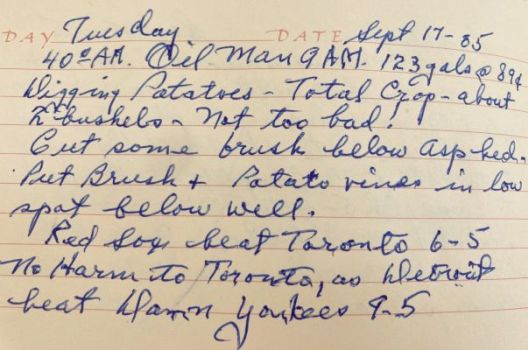 DAY Tuesday DATE Sept 17-85
40° AM. Oil Man 9 AM. 123 gals @ 89¢
Digging Potatoes - Total Crop - about
2 bushels - Not too bad!
Cut some brush below Asp bed.
Put Brush & Potato vines in low
spot below well.
Red Sox beat Toronto 6-5
No Harm to Toronto, as Detroit
beat Damn Yankees 9-5